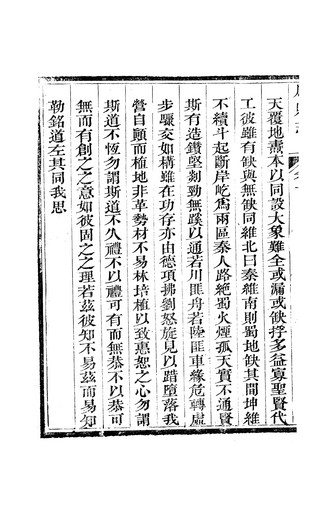 天覆地燾本以同設大象難全或漏或缺捊多益寡聖賢代
工彼雖有缺與無缺同維北曰秦維南則蜀地缺其間坤維
不續斗起斷岸屹爲兩區秦人路絶蜀火煙孤天實不通賢
斯有造鑽堅剗勁無蹊以通若川匪舟若陸匪車緣危轉虛
步驟交如構雖在功存亦由德項拂劉怒旋見以踣墮落我
營自顚而植地非革勢材不易林培植以致惠恕之心勿謂
斯道不恆勿謂斯道不久禮不以禮可有而無恭不以恭可
無而有創之之意如彼固之之理若茲彼知不易茲而易知
勒銘道左其同我思